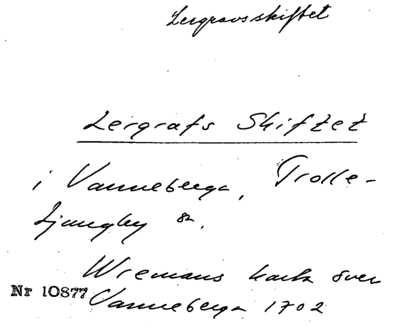 Lergravsskiftet
Lergrafs Skiftet
i Vanneberga, Trolle-
Ljungby sn.
Wiemans karta över
Nr 10877 Vanneberga 1702